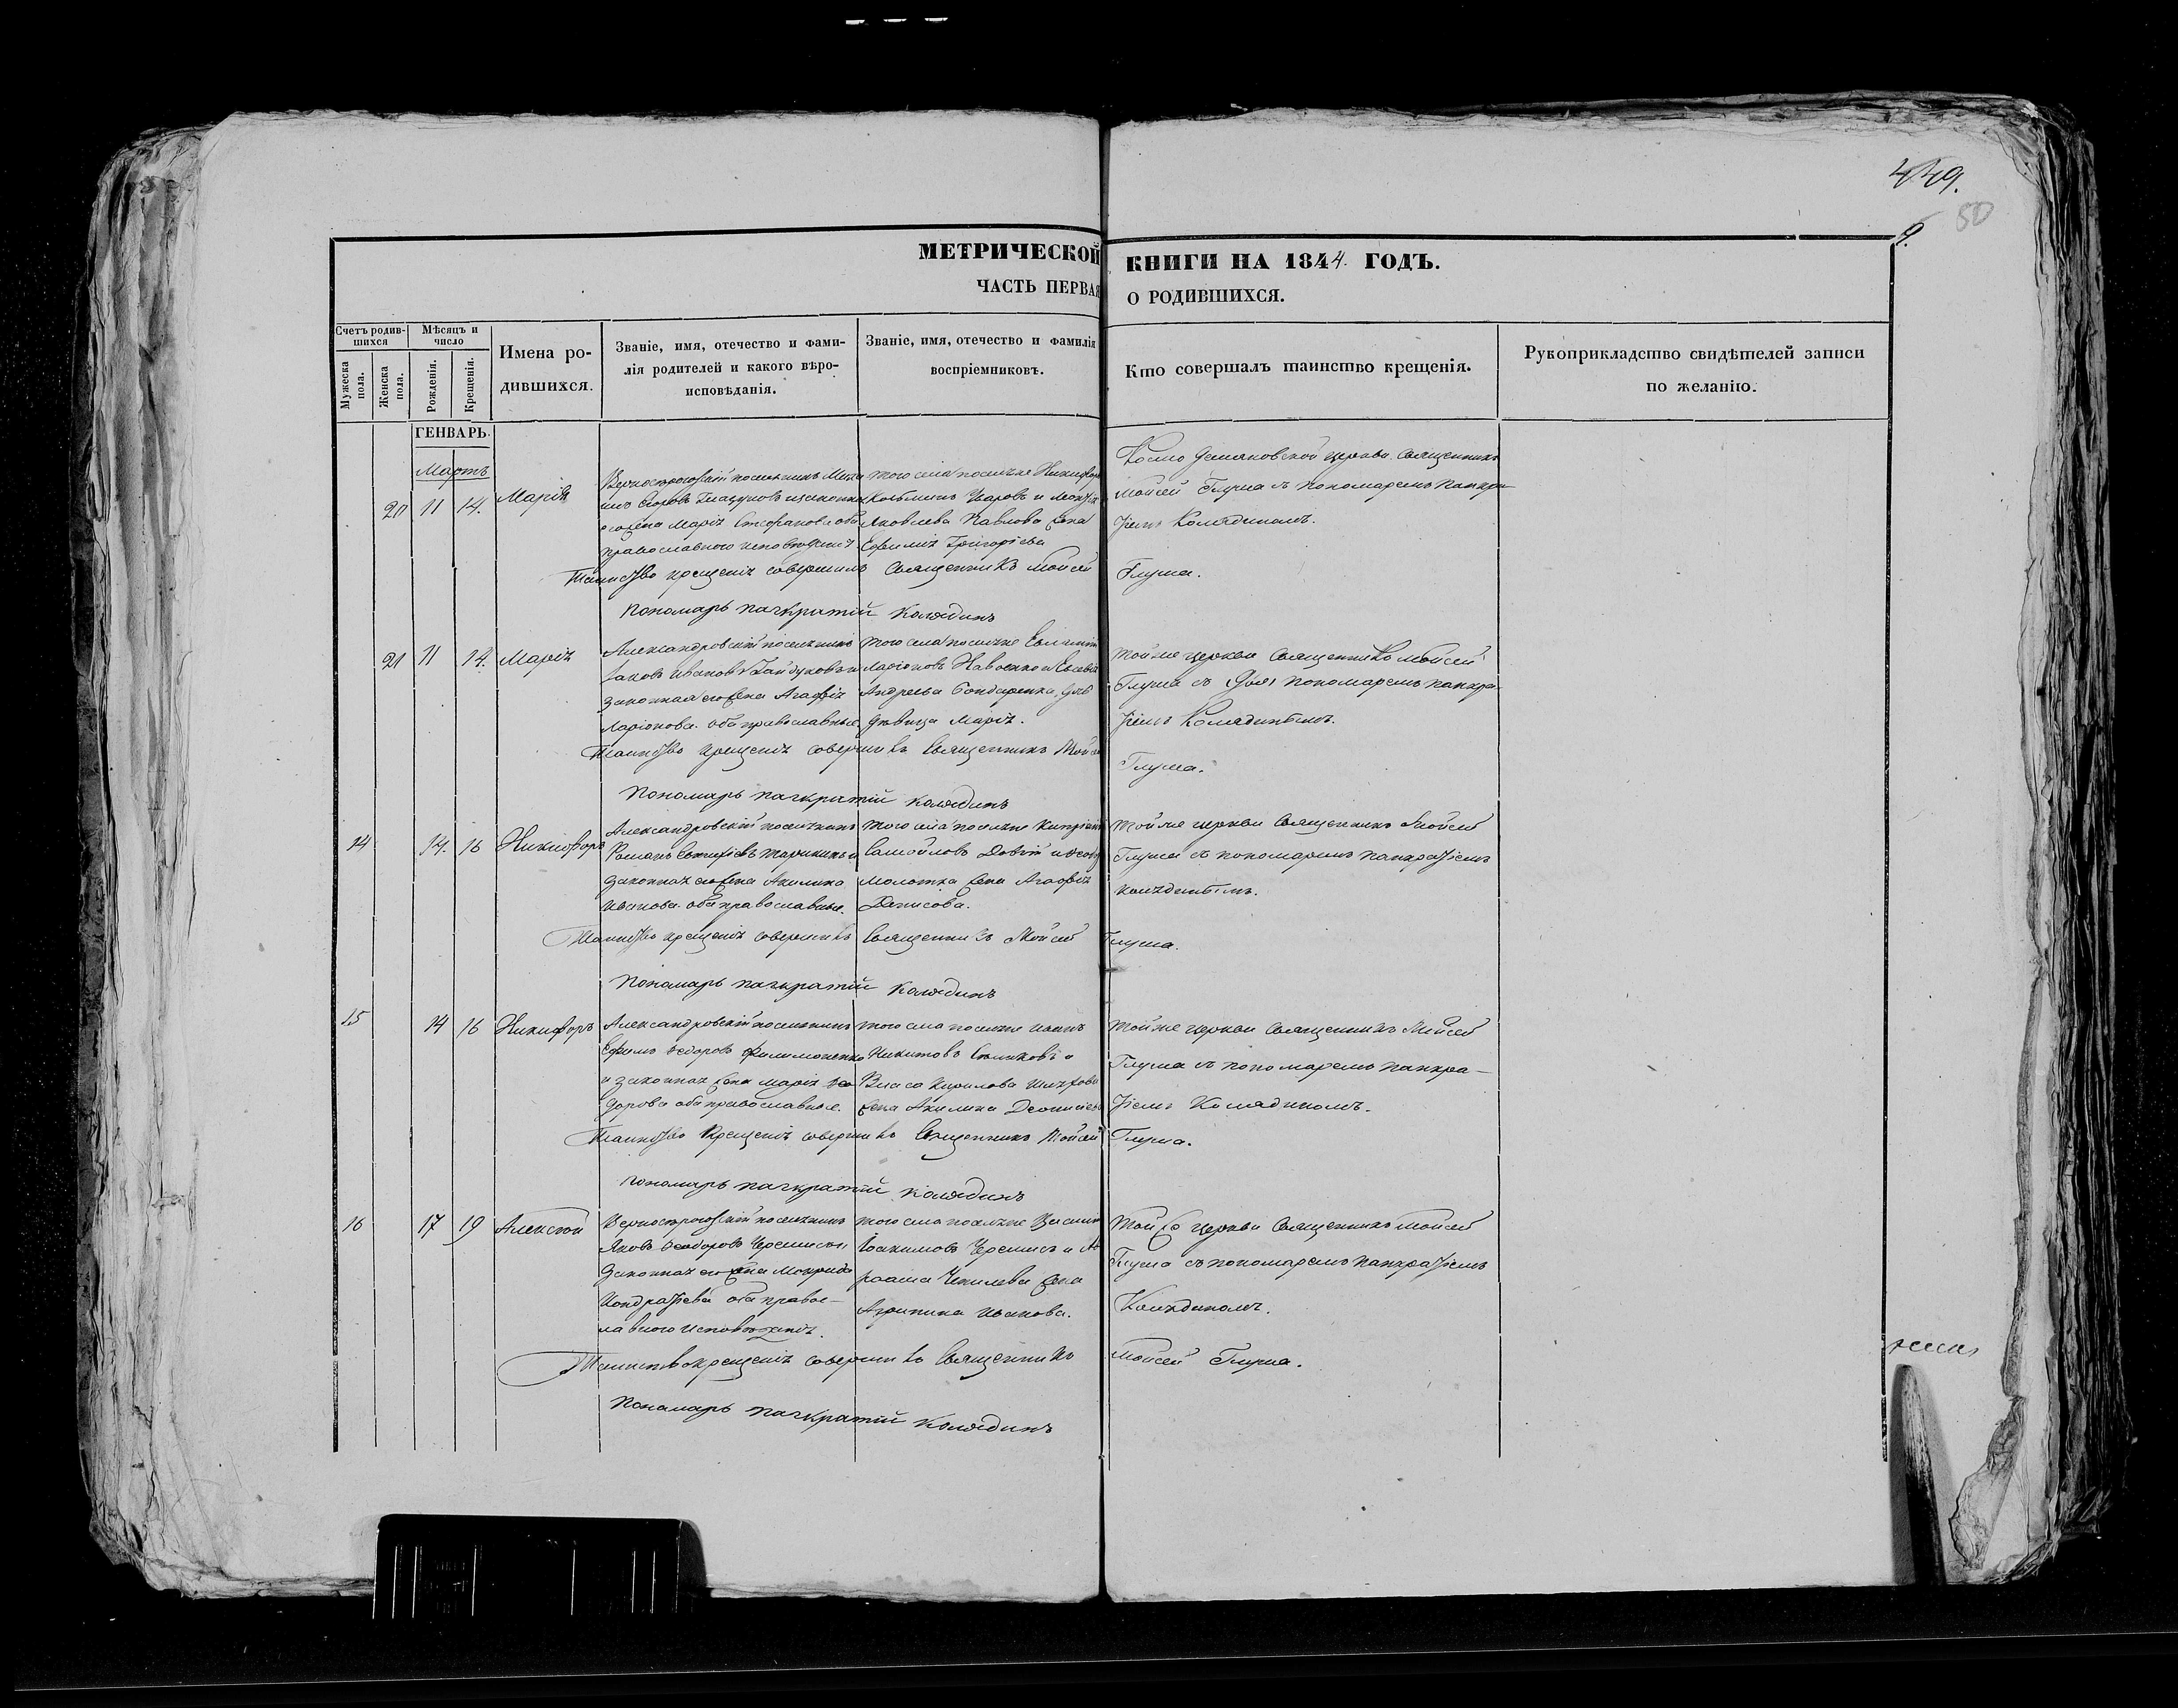 449.
50
9.
МЕТРИЧЕСКОЙ КНИГИ НА 1844. ГОДЪ.
ЧАСТЬ ПЕРВАЯ О РОДИВШИХСЯ.
Счетъ родив-
шихся
Мужеска
пола.
Женска
пола.
Мѣсяцъ и
число
Рожденія.
Крещенія.
Имена ро-
дившихся.
Званіе, имя, отечество и фами-
лія родителей и какого вѣро-
исповѣданія.
Званіе, имя, отечество и фамилія
воспріемниковъ.
Кто совершалъ таинство крещенія.
Рукоприкладство свидѣтелей записи
по желанію.
ГЕНВАРЬ.
Мартъ
20 11 14. Марія
поселянинъ Миха
илъ Егоровъ и законная
его жена Марія Стефанова оба
православного исповѣданія
того села поселяне Никифоръ
Козьминъ Уваровъ и
Яковлева Павлова жена
Ефимія Григорьева
Космо Демяновской церкви Священникъ
Мойсей Глума съ пономаремъ Панкра
тіемъ Колядиномъ.
Таинство крещенія совершилъ Священникъ Мойсей Глума.
Пономарь Панкратій Колядинъ
21 11 14. Марія
Александровскій поселянинъ
Іаковъ Ивановъ и
законная его жена Агафія
Ларіонова. оба православные.
того села поселяне Евлампій
Ларіоновъ и
Андреева Бондаренка, дочь
дѣвица Марія.
Тойже церкви Священникъ Мойсей
Глума съ пономаремъ Панкра
тіемъ Колядинымъ.
Таинство крещенія совершилъ Священникъ Мойсей Глума.
Пономарь Панкратій Колядинъ
14 14. 16 Никифоръ
Александровскій поселянинъ
Романъ и
законная его жена Акилина
Иванова. оба православные.
того села поселяне Кипріанъ
Самойловъ и
жена Агафія
Денисова.
Тойже церкви Священникъ Мойсей
Глума съ пономаремъ Панкратіемъ
Колядинымъ.
Таинство крещенія совершилъ Священникъ Мойсей Глума.
Пономарь Панкратій Колядинъ
15 14 16 Никифоръ
Александровскій поселянинъ
Ефимъ Федоровъ Филимоненко
и законная жена Марія Фео
дорова оба православные.
того села поселяне Иванъ
Никитовъ и
Власа Кирилова
жена Акилина
Тойже церкви Священникъ Мойсей
Глума съ пономаремъ Панкра-
тіемъ Колядиномъ.
Таинство Крещенія совершилъ Священникъ Мойсей Глума.
Пономарь Панкратій Колядинъ
16 17 19 Алексѣй
поселянинъ
Яковъ Феодоровъ Черемисъ и
законная его жена Мокрида
Кондратіева оба право-
славного исповѣданія.
того села поселяне Василій
Іоакимовъ Черемисъ и
жена
Агрипина Иванова.
Тойже церкви Священникъ Мойсей
Глума съ пономаремъ Панкратіемъ
Колядиномъ.
Таинство крещенія совершилъ Священникъ Мойсей Глума.
Пономарь Панкратій Колядинъ